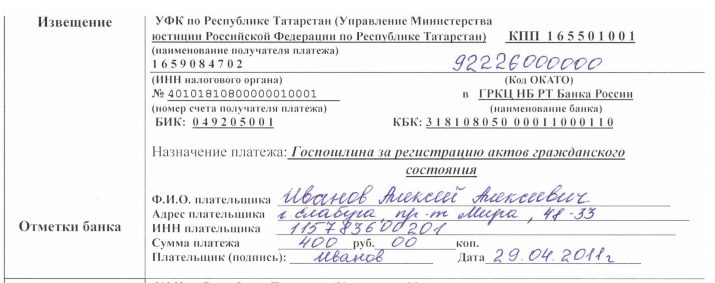 Извещение
УФК по Республике Татарстан (Управление Министерства
юстиции Российской Федерации по Республике Татарстан) КПП 165501001
(наименование получателя платежа)
1659084702 92226000000
(ИНН налогового органа) (Код ОКАТО)
№ 40101810800000010001 в ГРКЦ НБ РТ Банка России
(номер счета получателя платежа) (наименование банка)
БИК: 049205001 КБК: 318108050 00011000110
Назначение платежа: Госпошлина за регистрацию актов гражданского
состояния
Ф.И.О. плательщика Иванов Алексей Алексеевич
Адрес плательщика г Елабуга, пр-т Мира, 48-33
Отметки банка ИНН плательщика 115783600201
Сумма платежа 400 руб. 00 коп.
Плательщик (подпись): Иванов Дата 29.04.2011г